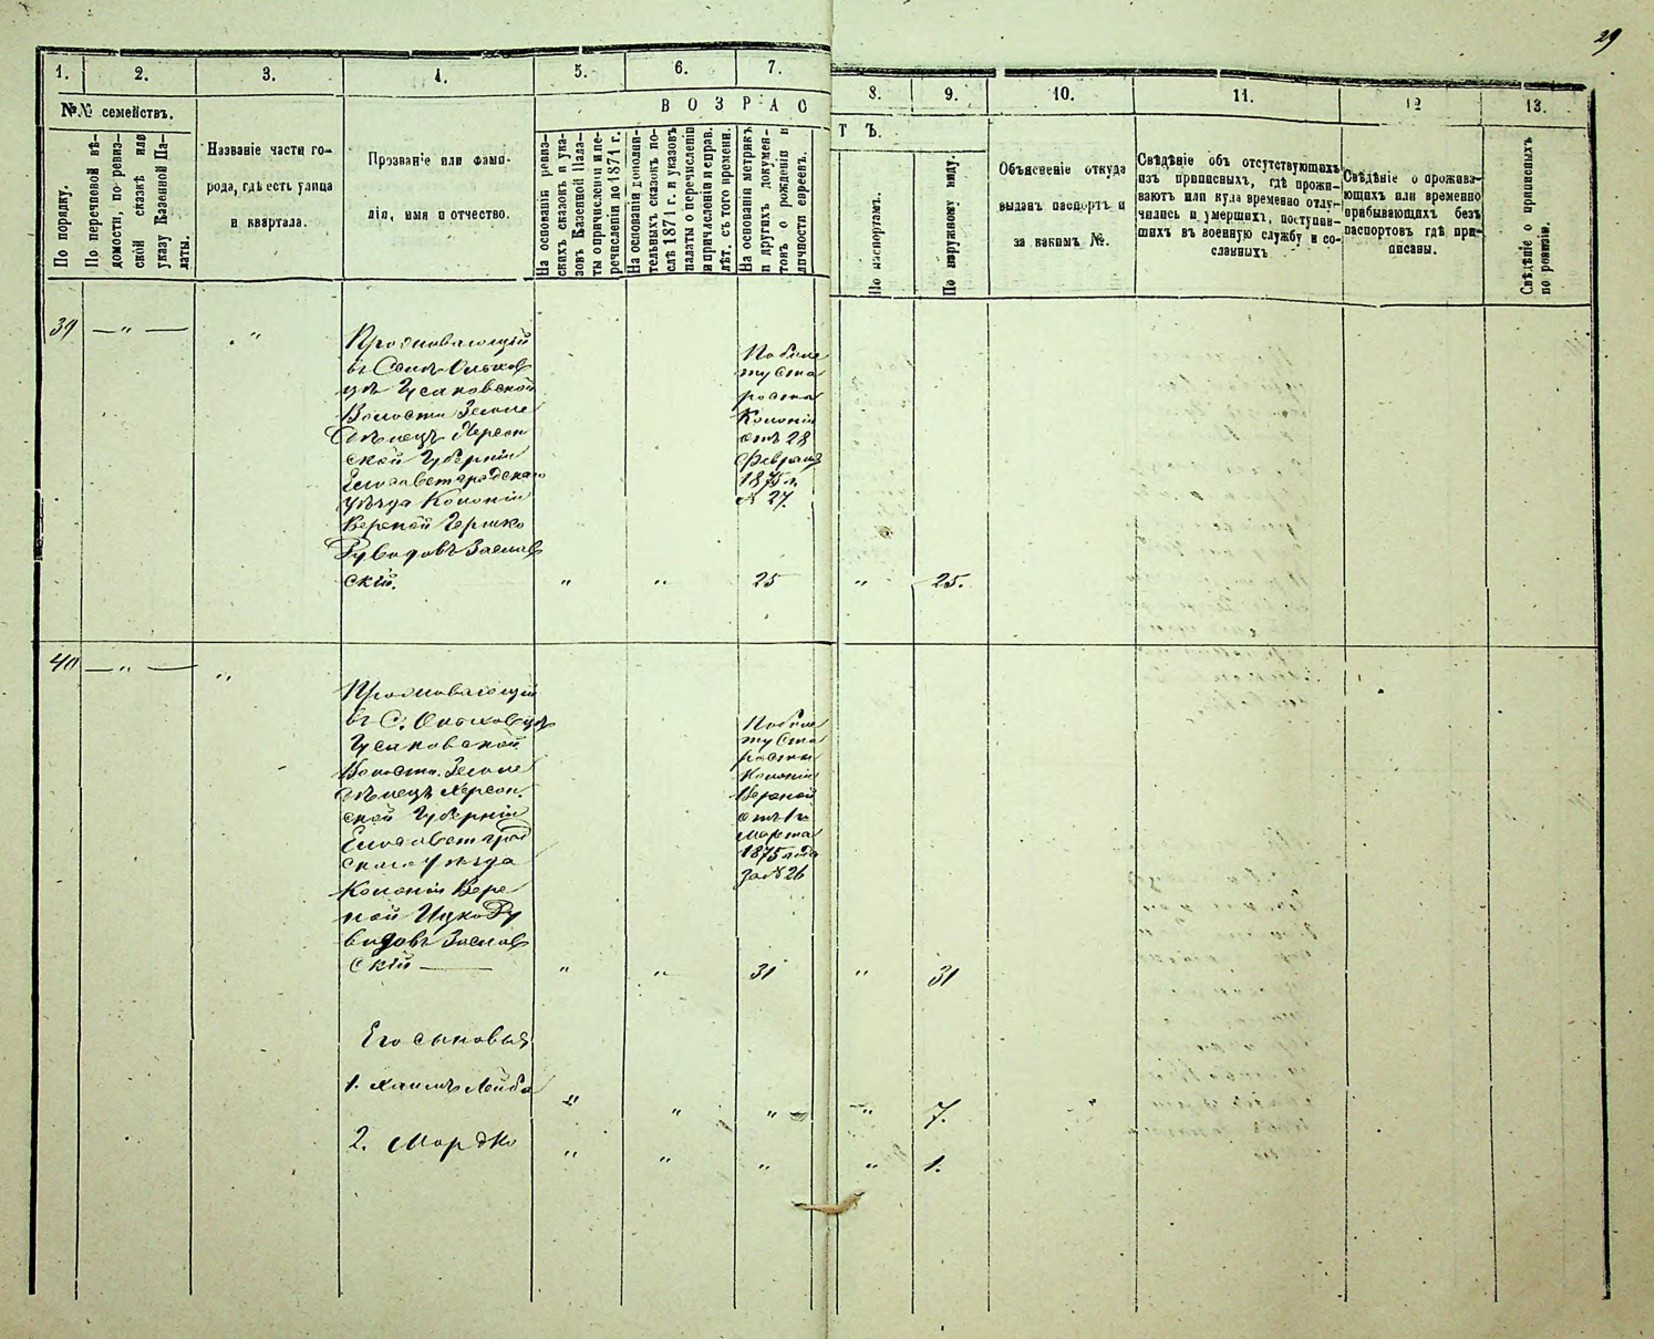 29
1. 2. 3. 4. 5. 6. 7. 8. 9. 10. 11. 12 13.
№№ семействъ.
По порядку.
По перечневой вѣ-
домости, по ревиз-
ской сказкѣ или
указу Казенной Па-
латы.
Названіе части го-
рода, гдѣ есть улица
и квартала.
Прозваніе или фами-
лія, имя и отчество.
ВОЗРАС
ТЪ.
На основаніи ревиз-
скихъ сказокъ и ука-
зовъ Казенной Пала-
ты о причисленіи и пе-
речисленіи до 1871 г.
На основаніи дополни-
тельныхъ сказокъ по-
слѣ 1871 г. и указовъ
палаты о перечисленіи
и причисленіи и справ.
лѣт. съ того времени.
На основаніи метрикъ
и другихъ докумен-
товъ о рожденіи и
личности евреевъ.
По паспортамъ.
По наружному виду.
Объясненіе откуда
выданъ паспортъ и
за какимъ №.
Свѣдѣніе объ отсутствующихъ
изъ приписныхъ, гдѣ прожи-
ваютъ или куда временно отлу-
чились и умершихъ, поступив-
шихъ въ военную службу и со-
сланныхъ
Свѣдѣніе о прожива-
ющихъ или временно
прибывающихъ безъ
паспортовъ гдѣ при-
писаны.
Свѣдѣніе о приписныхъ
по ревизіи.
39 — " — "
Проживающій
въ Селѣ
Гусаковской
Волости Земле
дѣлецъ Херсон
ской Губерніи
Елисаветградскаго
уѣзда Колоніи
Гершко
Рувиновъ Заслав
скій. " " 25 " 25.
По биле
ту Ста
росты
Колоніи
отъ 28
Февраля
1875 г.
№ 27.
40 — " — "
Проживающій
въ С.
Гусаковской
Волости Земле
дѣлецъ Херсон.
ской Губерніи
Елисаветград
скаго уѣзда
Колоніи
Ицко Ру
виновъ Заслав
скій — " " 31 " 31
По биле
ту Ста
росты
Колоніи
отъ 1го
Марта
1875 года
за № 26
Его сыновья
1. Хаимъ Лейба " " " " 7.
2. Мордко " " " " 1.